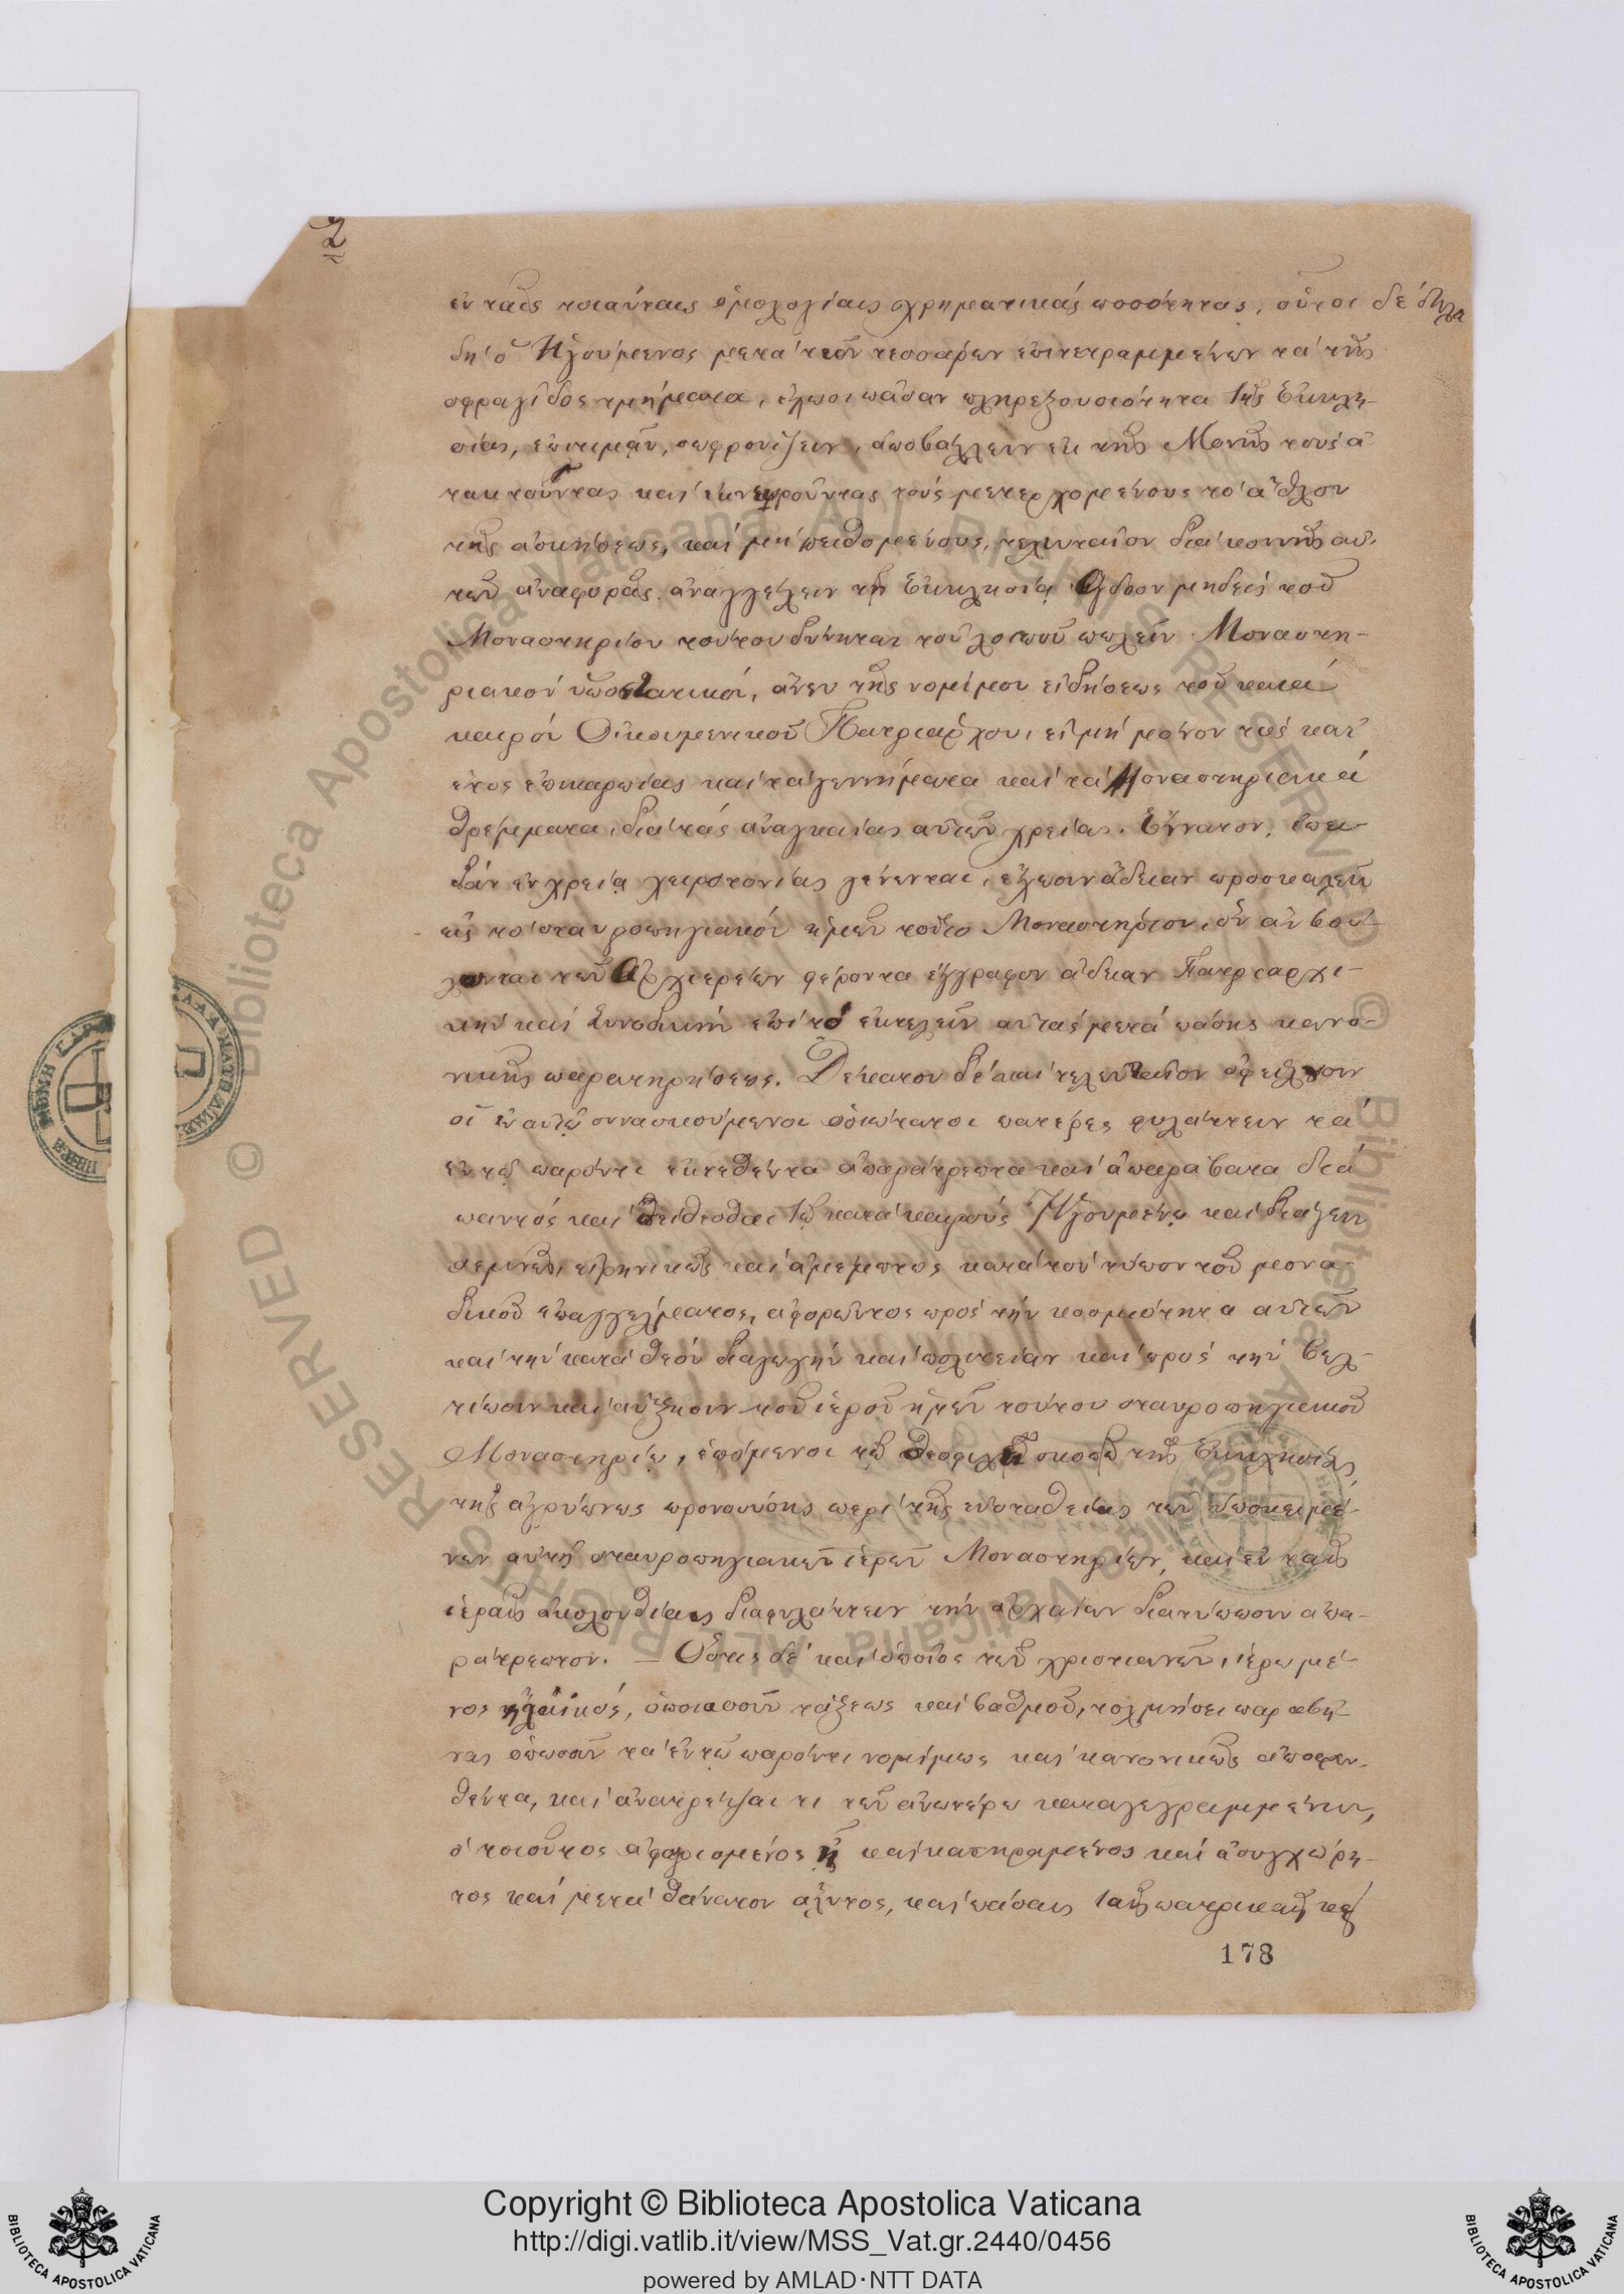 ἐν ταῖς τοιαύταις ὁμολογίαις χρηματικάς ποσότητας, οὗτοι δέ δηλα
δή ὁ Ἡγούμενος μετά τῶν τεσσάρων ἐπιτετραμμένων τά τῆς
σφραγῖδος τμήματα, ἔχωσι πᾶσαν πληρεξουσιότητα τῆς Ἐκκλη-
σίας, ἐπιτιμᾷν, σωφρονίζειν, ἀποβάλλειν ἐκ τῆς Μονῆς τούς ἀ
τακτοῦντας καί τούς μετερχομένους τό ἆθλον
τῆς ἀσκήσεως, καί μή πειθομένους, τελευταῖον διά κοινῆς αὐ-
τῶν ἀναφορᾶς ἀναγγέλλειν τῇ Ἐκκλησίᾳ Ὄγδοον μηδείς τοῦ
Μοναστηρίου τούτου δύνηται τοῦ λοιποῦ πωλεῖν Μοναστη-
ριακόν ὑποστατικόν, ἄνευ τῆς νομίμου εἰδήσεως τοῦ κατά
καιρόν Οἰκουμενικοῦ Πατριάρχου, εἰμή μόνον τάς κατ'
ἔτος ἐπικαρπίας καί τά γεννήματα καί τά Μοναστηριακά
θρέμματα, διά τάς ἀναγκαίας αὐτῶν χρείας. Ἔννατον, ἐπει-
δάν ἐν χρείᾳ χειροτονίας γένωνται, ἔχωσιν ἄδειαν προσκαλεῖν
εἰς τό σταυροπηγιακόν ἡμῶν τοῦτο Μοναστήριον, ὅν ἄν βού-
λωνται τῶν Ἀρχιερέων φέροντα ἔγγραφον ἄδειαν Πατριαρχι-
κήν καί Συνοδικήν ἐπί τό ἐκτελεῖν αὐτάς μετά πάσης κανο-
νικῆς παρατηρήσεως. Δέκατον δέ καί τελευταῖον ὀφείλουσιν
οἱ ἐν αὐτῷ συνασκούμενοι ὁσιώτατοι πατέρες φυλάττειν τά
ἐν τῷ παρόντι ἐκτεθέντα ἀπαράτρεπτα καί ἀπαράβατα διά
παντός καί πείθεσθαι τῷ κατά καιρούς Ἡγουμένῳ καί διάγειν
σεμνῶς, εἰρηνικῶς καί ἀμέμπτως κατά τόν τύπον τοῦ μονα-
δικοῦ ἐπαγγέλματος, ἀφορῶντος πρός τήν κοσμιότητα αὐτῶν
καί τήν κατά Θεόν διαγωγήν καί πολιτείαν καί πρός τήν βελ-
τίωσιν καί αὔξησιν τοῦ ἱεροῦ ἡμῶν τούτου σταυροπηγιακοῦ
Μοναστηρίου, ἑπόμενοι τῷ θεοφιλεῖ σκοπῷ τῆς Ἐκκλησίας,
τῆς ἀγρύπνως προνοούσης περί τῆς εὐσταθείας τῶν ὑποκειμέ-
νων αὐτῇ σταυροπηγιακῶν ἱερῶν Μοναστηρίων, καί ἐν ταῖς
ἱεραῖς ἀκολουθίαις διαφυλάττειν τήν ἀρχαίαν διατύπωσιν ἀπα-
ράτρεπτον. — Ὅστις δέ καί ὁποῖος τῶν χριστιανῶν, ἱερωμέ-
νος ἤ λαϊκός, ὁποιασοῦν τάξεως καί βαθμοῦ, τολμήσει παραβῆ-
ναι ὁπωσοῦν τά ἐν τῷ παρόντι νομίμως καί κανονικῶς ἀποφαν-
θέντα, καί ἀνατρέψαι τι τῶν ἀνωτέρω καταγεγραμμένων,
ὁ τοιοῦτος ἀφωρισμένος ᾖ καί κατηραμένος καί ἀσυγχώρη-
τος καί μετά θάνατον ἄλυτος, καί πάσαις ταῖς πατρικαῖς καί
178
Copyright © Biblioteca Apostolica Vaticana
http://digi.vatlib.it/view/MSS_Vat.gr.2440/0456
powered by AMLAD·NTT DATA
BIBLIOTECA APOSTOLICA VATICANA
BIBLIOTECA APOSTOLICA VATICANA